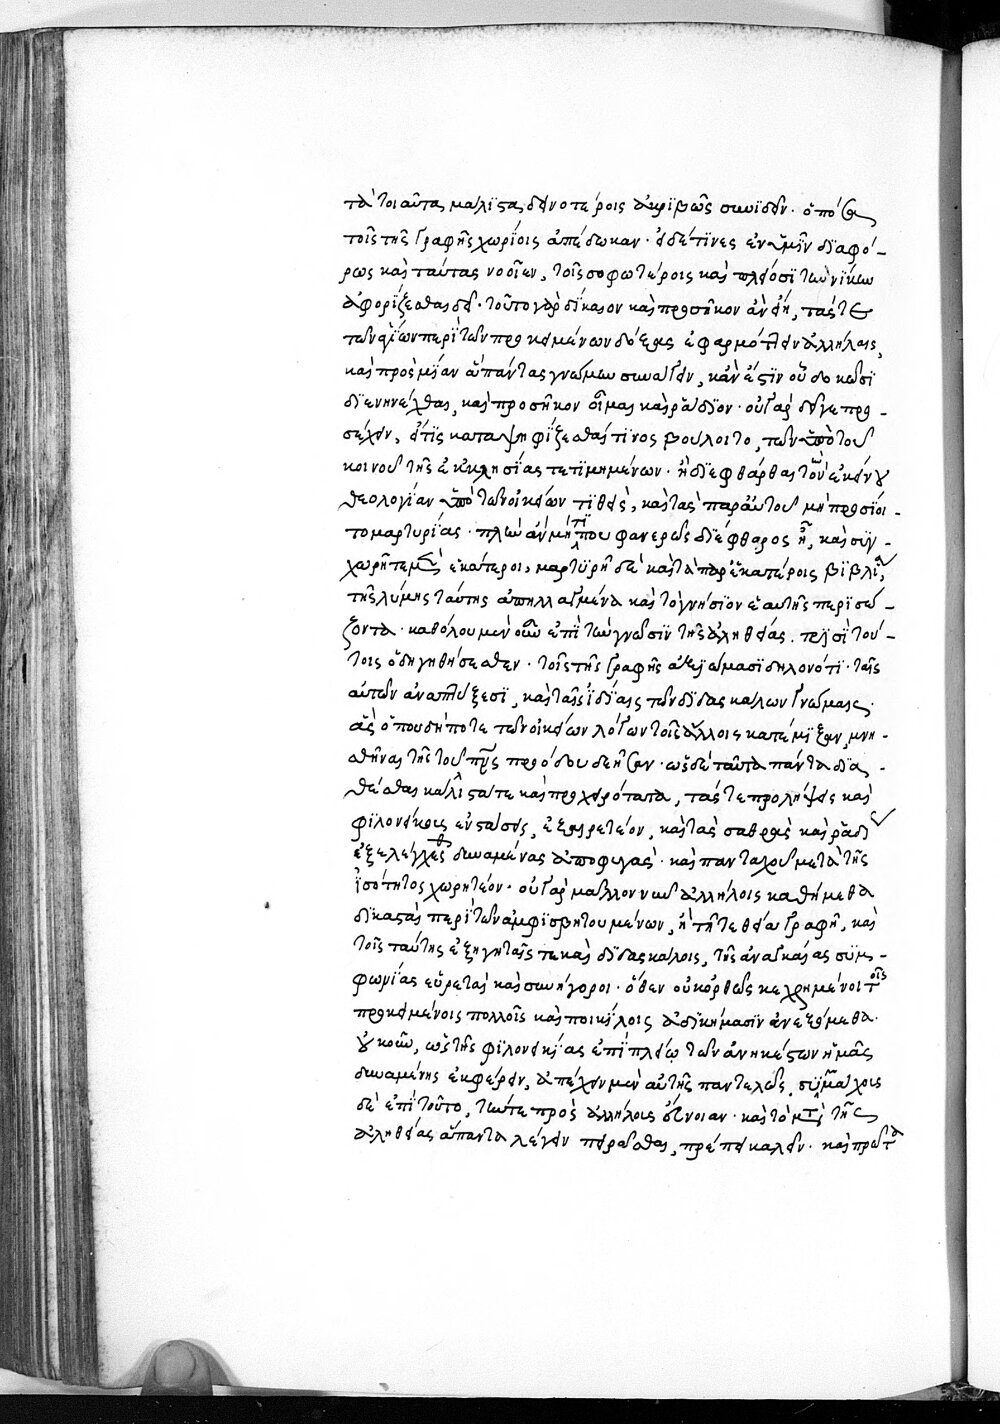 τὰ τοιαῦτα μάλιστα δεινοτέροις ἀκριβῶς συνιδεῖν. ὁπόσα
τοῖς τῆς γραφῆς χωρίοις ἀπέδωκαν. εἰ δέ τινες ἐν ἡμῖν διαφό-
ρως καὶ ταύτας νοοῖεν, τοῖς σοφωτέροις καὶ πλείοσι τὴν νίκην
ἀφορίζεσθαι δεῖ. τοῦτο γὰρ δίκαιον καὶ προσῆκον ἂν εἴη, τάς τε
τῶν ἁγίων περὶ τῶν προκειμένων δόξας ἐφαρμόττειν ἀλλήλαις,
καὶ πρὸς μίαν ἅπαντας γνώμην συνάγειν, κἂν ἔστιν οὗ δοκῶσι
διενηνέχθαι, καὶ προσῆκον οἶμαι καὶ ῥᾴδιον. οὐ γὰρ δεῖ γε προ-
σέχειν, εἴ τις καταψηφίζεσθαί τινος βούλοιτο, τῶν ὑπὸ τοῦ
κοινοῦ τῆς ἐκκλησίας τετιμημένων. ἢ διεφθάρθαι τὴν ἐκείνου
θεολογίαν ὑπὸ τῶν οἰκείων τιθείς, καὶ τὰς παρ' αὐτοῦ μὴ προσίοι-
το μαρτυρίας. πλὴν ἂν μή τί που φανερῶς διέφθαρος ᾖ, καὶ συγ-
χωρῆται μὲν ἑκάτεροι, μαρτυρῇ δὲ καὶ τὰ παρ' ἑκατέροις βιβλία,
τῆς λύμης ταύτης ἀπηλλαγμένα καὶ τὸ γνήσιον ἑαυτῆς περισώ-
ζοντα. καθόλου μὲν οὖν ἐπὶ τὴν γνῶσιν τῆς ἀληθείας. τρισὶ τού-
τοις ὁδηγηθήσεσθεν. τοῖς τῆς γραφῆς ἀξιώμασι δηλονότι. ταῖς
αὐτῶν ἀναπτύξεσι, καὶ ταῖς ἰδίαις τῶν διδασκάλων γνώμαις.
ἃς ὁπουδήποτε τῶν οἰκείων λόγων τοῖς ἄλλοις κατέμιξαν, μνη-
σθῆναι τῆς τοῦ πνς προόδου δεῆσαν. ὡς δὲ ταῦτα πάντα δια-
θέσθαι κάλλιστά τε καὶ προχειρότατα, τάς τε προλήψεις καὶ
φιλονείκους ἐνστάσεις, ἐξαιρετέον, καὶ τὰς σαθρὰς καὶ ῥᾳδί
ἐξελεγχθῆναι δυναμένας ἀποφυγάς. καὶ πανταχοῦ μετὰ τῆς
ἰσότητος χωρητέον. οὐ γὰρ μᾶλλον νῦν ἀλλήλοις καθήμεθα
δικασταὶ περὶ τῶν ἀμφισβητουμένων, ἢ τῇ τε θείᾳ γραφῇ, καὶ
τοῖς ταύτης ἐξηγηταῖς τε καὶ διδασκάλοις, τῆς ἀναγκαίας συμ-
φωνίας εὑρεταὶ καὶ συνήγοροι. ὅθεν οὐκ ὀρθῶς κεχρημένοι τοῖς
προκειμένοις πολλοῖς καὶ ποικίλοις ἀδικήμασιν ἀνεξόμεθα.
οὐκοῦν, ὡς τῆς φιλονεικίας ἐπὶ πλέῳ τῶν ἀνηκέστων ἡμᾶς
δυναμένης ἐκφέρειν, ἀπέχειν μὲν αὐτῆς παντελῶς, συμμάχοις
δὲ ἐπὶ τοῦτο, τῇ τε πρὸς ἀλλήλους εὐνοίᾳ. καὶ τὸ μετὰ τῆς
ἀληθείας ἅπαντα λέγειν πειρᾶσθαι, πρέπει καλεῖν. καὶ πρῶτα